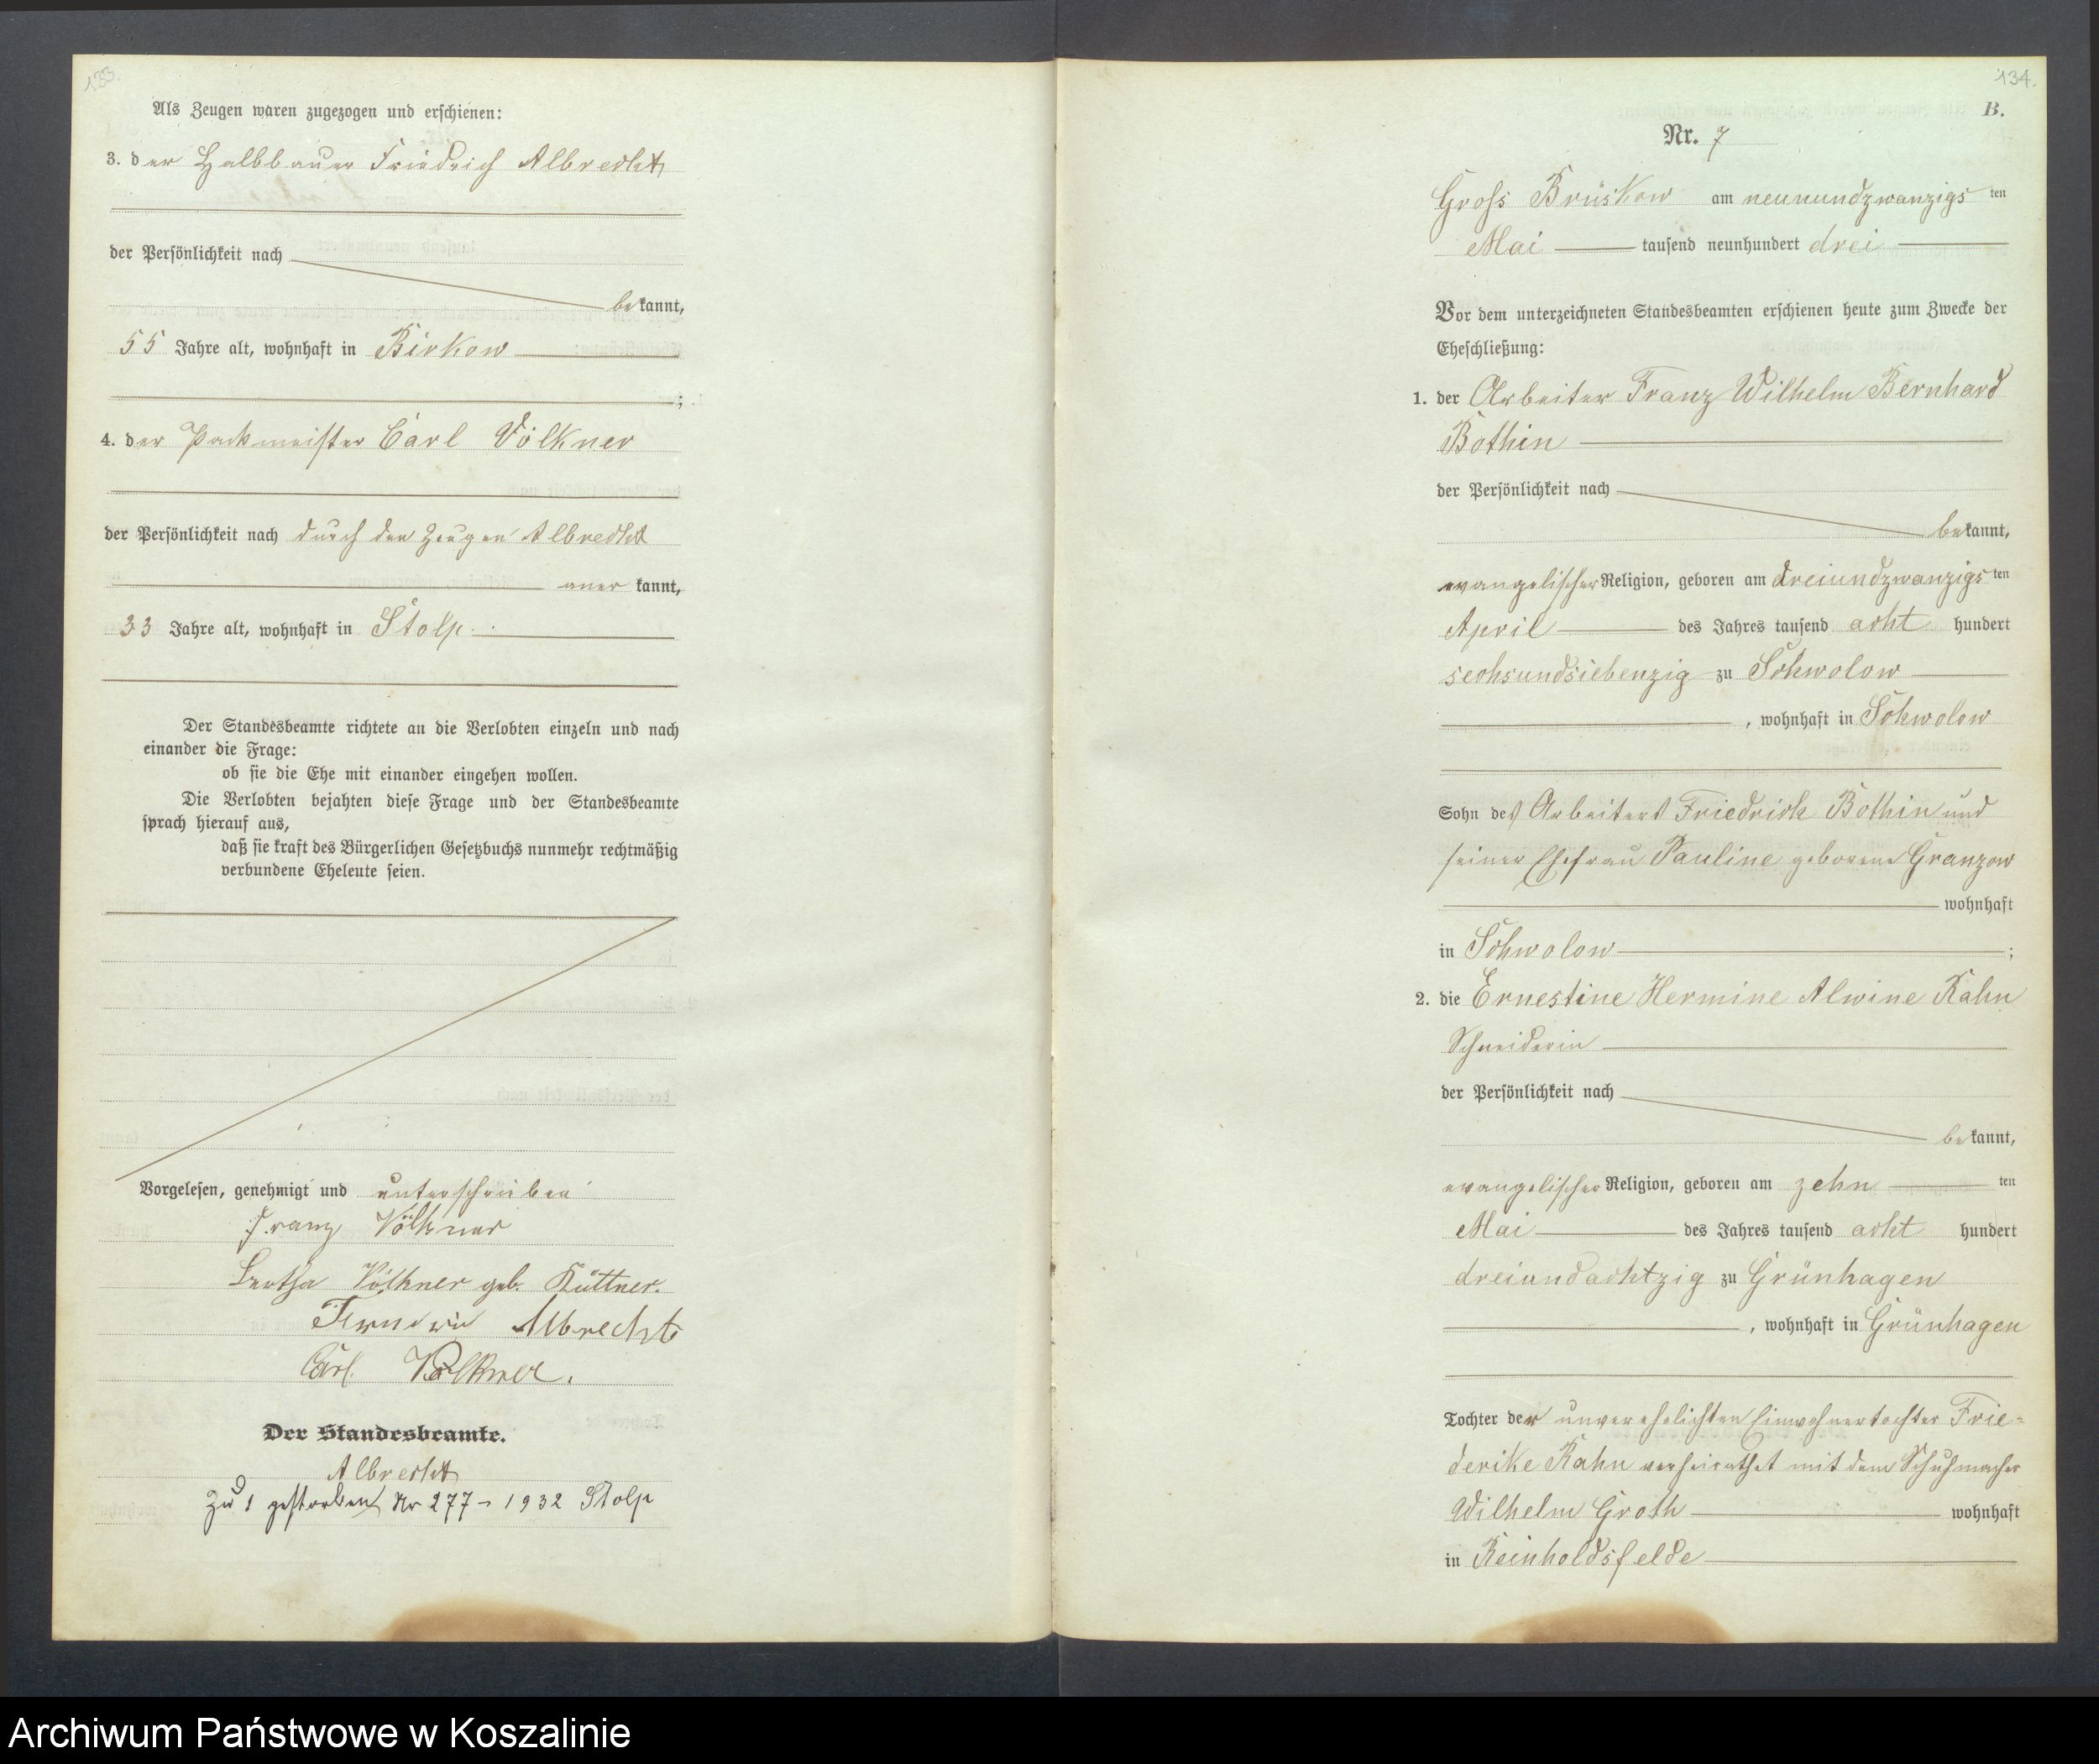 133.
Als Zeugen waren zugezogen und erschienen:
3. der Halbbauer Friedrich Albrecht
der Persönlichkeit nach
bekannt,
55 Jahre alt, wohnhaft in Birkow
;
4. der Packmeister Carl Völkner
der Persönlichkeit nach durch den Zeugen Albrecht
anerkannt,
33 Jahre alt, wohnhaft in Stolp.
Der Standesbeamte richtete an die Verlobten einzeln und nach
einander die Frage:
ob sie die Ehe mit einander eingehen wollen.
Die Verlobten bejahten diese Frage und der Standesbeamte
sprach hierauf aus,
daß sie kraft des Bürgerlichen Gesetzbuchs nunmehr rechtmäßig
verbundene Eheleute seien.
Vorgelesen, genehmigt und unterschrieben
Franz Völkner
Bertha Völkner geb. Küttner.
Albrecht
Carl Völkner.
Der Standesbeamte.
Albrecht
Zu 1 gestorben Nr 277 - 1932 Stolp
134.
B.
Nr. 7
Gross Brüskow am neunundzwanzigsten
Mai tausend neunhundert drei
Vor dem unterzeichneten Standesbeamten erschienen heute zum Zwecke der
Eheschließung:
1. der Arbeiter Franz Wilhelm Bernhard
Bothin
der Persönlichkeit nach
bekannt,
evangelischer Religion, geboren am dreiundzwanzigsten
April des Jahres tausend acht hundert
sechsundsiebenzig zu Schwolow
, wohnhaft in Schwolow
Sohn des Arbeiters Friedrich Bothin und
seiner Ehefrau Pauline geborene Granzow
wohnhaft
in Schwolow ;
2. die Ernestine Hermine Alwine Kahn
Schneiderin
der Persönlichkeit nach
bekannt,
evangelischer Religion, geboren am zehn ten
Mai des Jahres tausend acht hundert
dreiundachtzig zu Grünhagen
, wohnhaft in Grünhagen
Tochter der unverehelichten Einwohnertochter Frie=
derike Kahn verheirathet mit dem Schuhmacher
Wilhelm Groth wohnhaft
in Reinholdsfelde
Archiwum Państwowe w Koszalinie